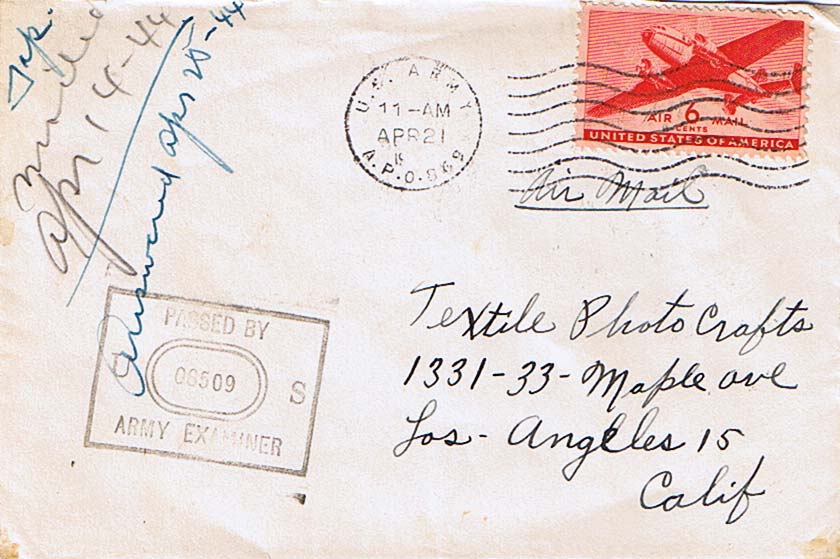 Jap.
mailed
apr 14-44
answered apr 25-44
U.S. ARMY
11-AM
APR 21
A.P.O.
AIR 6 MAIL
CENTS
UNITED STATES OF AMERICA
Air Mail
PASSED BY
U 06509 S
ARMY EXAMINER
Textile Photo Crafts
1331-33-Maple ave
Los-Angeles 15
Calif